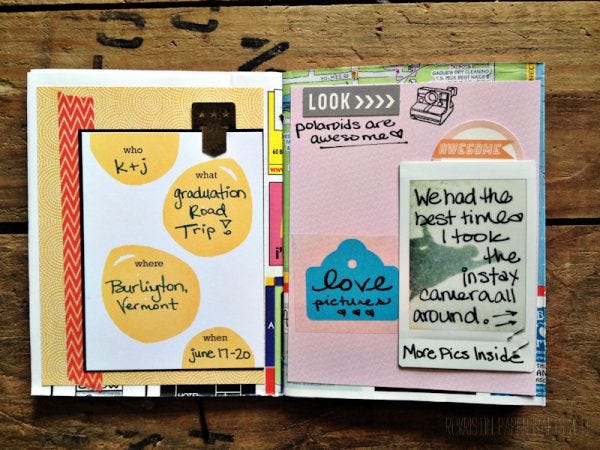 who
K+j
what
graduation
Road
Trip!
where
Burlington,
Vermont
when
june 17-20
LOOK >>>>
polaroids are
awesome
AWESOME
love
pictures
We had the
best time
I took
the
instax
camera all
around.
More Pics Inside
HOLMES RD
GADUE'S DRY CLEANING